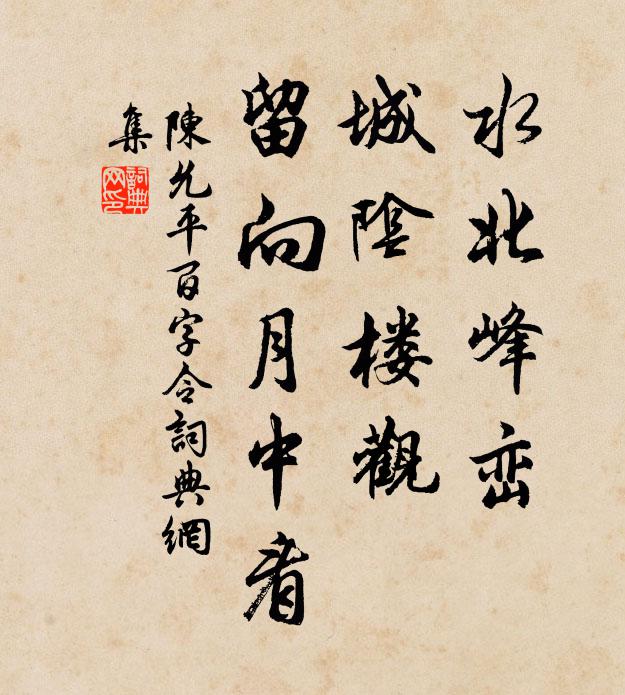 水北峰峦
城陰楼觀
留向月中看
陳允平百字令詞典網
集
詞典网印